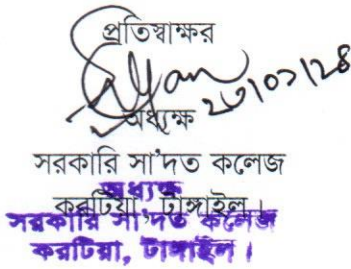 প্রতিস্বাক্ষর
অধ্যক্ষ
সরকারি সা'দত কলেজ
করটিয়া, টাঙ্গাইল।
অধ্যক্ষ
সরকারি সা'দত কলেজ
করটিয়া, টাঙ্গাইল।